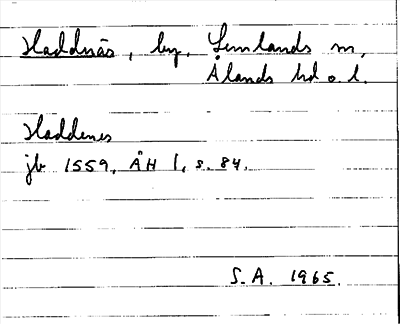 Haddnäs, by, Lemlands sn,
Ålands hd o. l.
Haddenes
jb 1559, ÅH I, s. 84.
S.A. 1965.